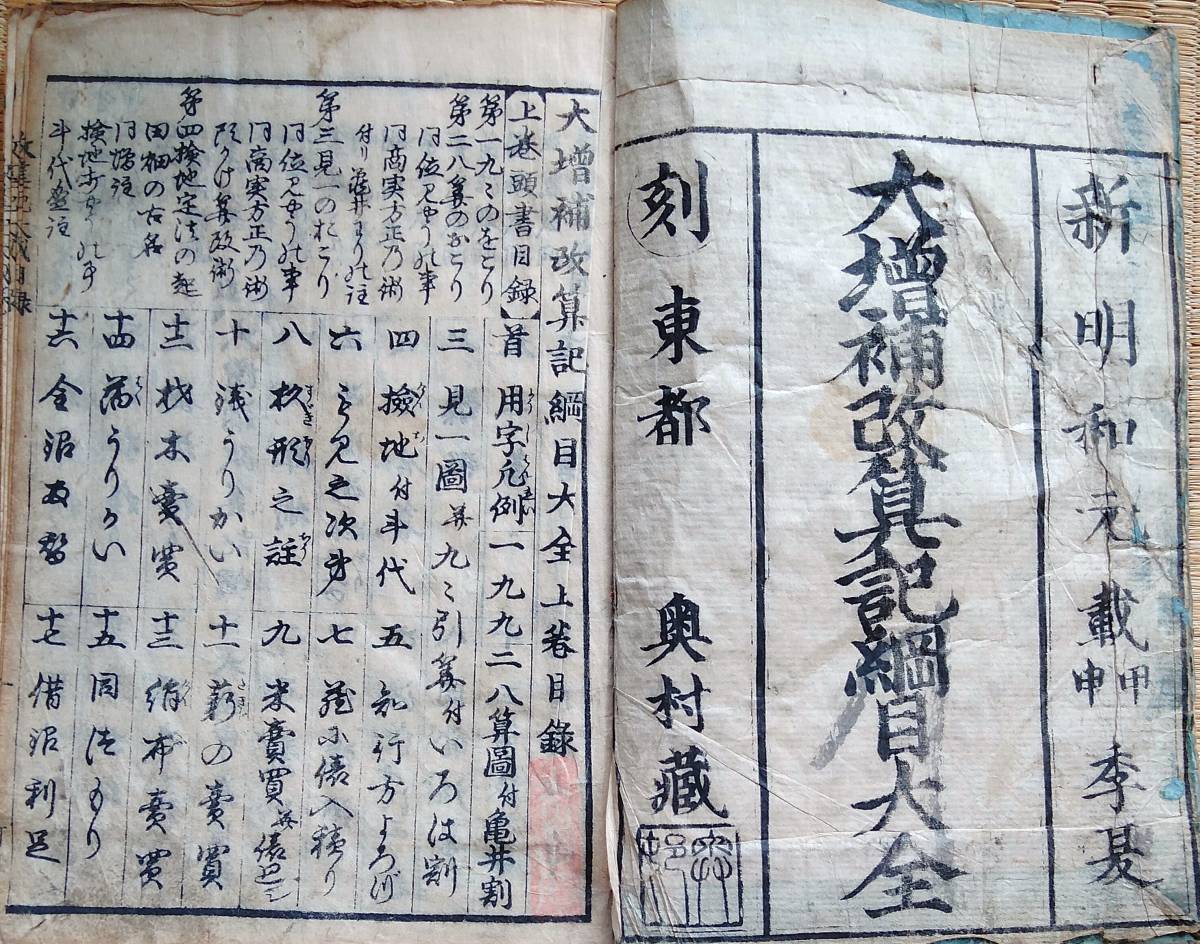 新明和元載甲申季夏
大增補改算記綱目大全
刻東都 奥村藏
大增補改算記綱目大全上巻目錄
上巻頭書目録
第一九〻のをこり
第二八算のおこり
同位見やうの事
同商実方正乃術
第三見一のおこり
同位見やうの事
同商実方正乃術
第四検地定法の起
田畑の古名
同増注
斗代盛注
首 用字凡例
一 九九
二 八算圖付亀井割
三 見一圖并九〻引算付いろは割
四 撿地付斗代
五 知行方よろづ
六 之次第
七 俵入積り
八 杉形之註
九 米賣買并俵
十 銭うりかい
十一 薪の賣買
十二 材木賣買
十三 絹布賣買
十四 うりかい
十五 同つもり
十六 金銀両替
十七 借銀利足